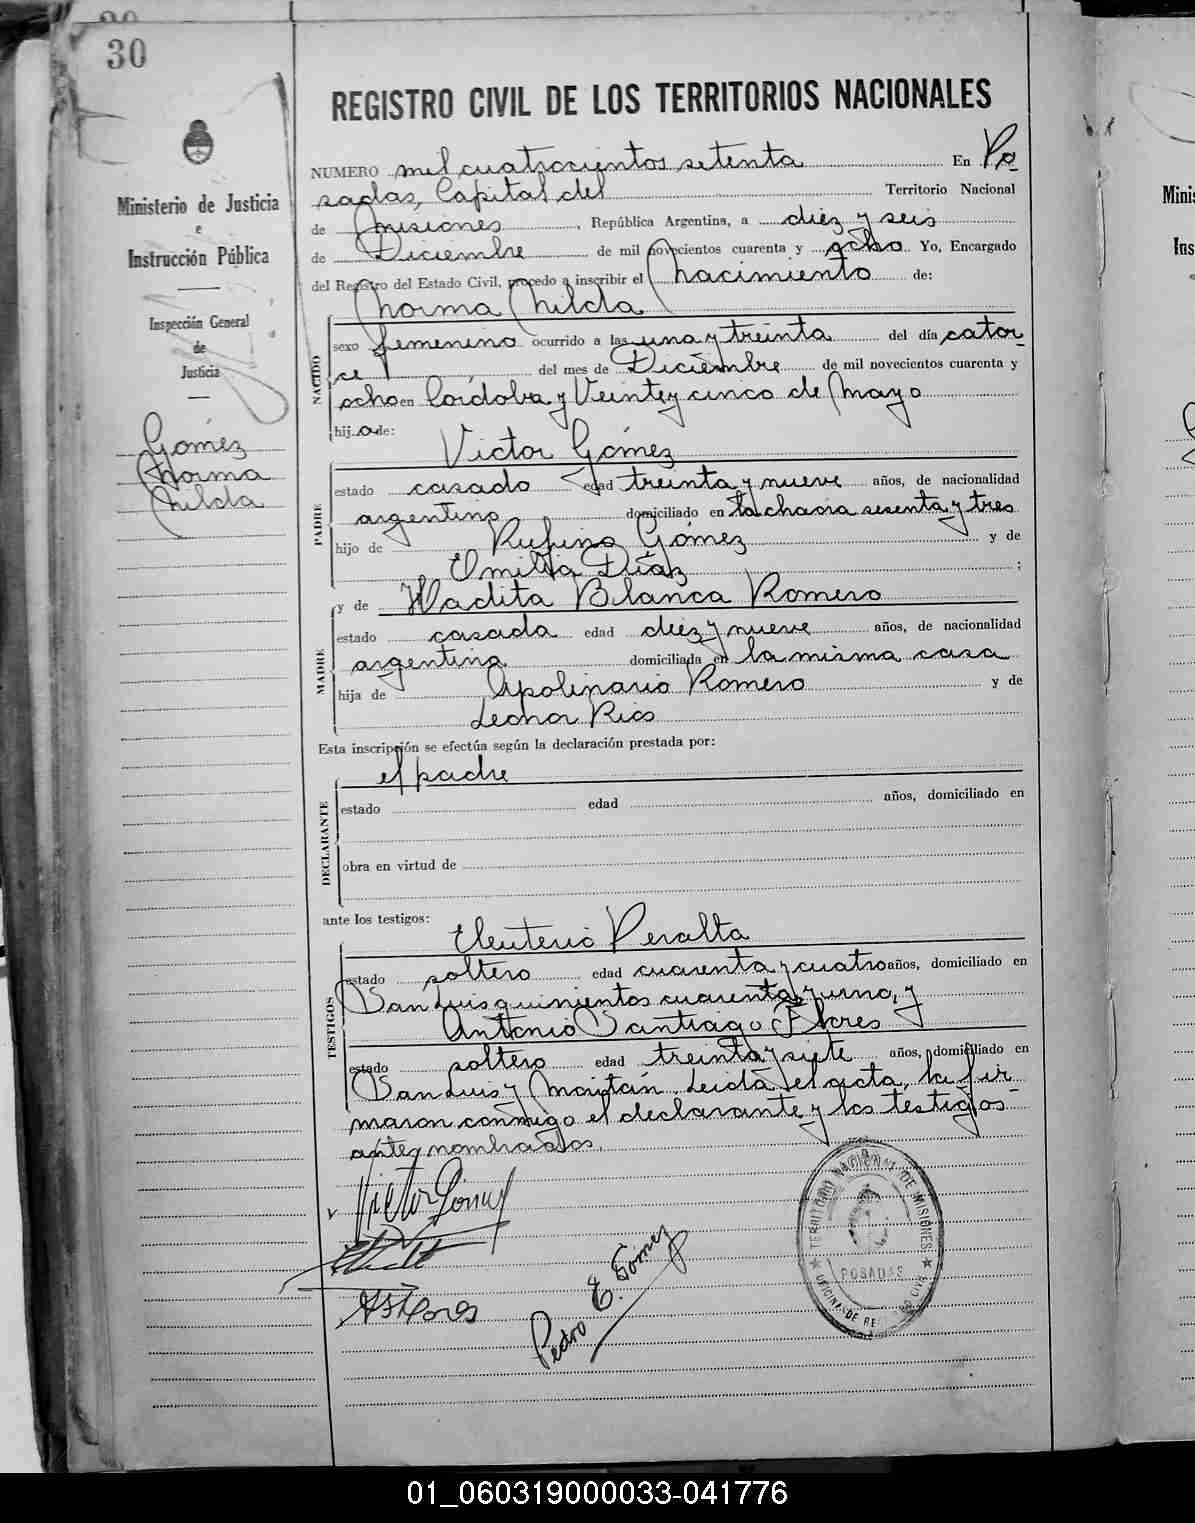 30
REGISTRO CIVIL DE LOS TERRITORIOS NACIONALES
Ministerio de Justicia
e
Instrucción Pública
Inspección General
de
Justicia
Gómez
Norma
Nilda
NUMERO mil cuatrocientos setenta En Po-
sadas, Capital del Territorio Nacional
de Misiones, República Argentina, a diez y seis
de Diciembre de mil novecientos cuarenta y ocho Yo, Encargado
del Registro del Estado Civil, procedo a inscribir el nacimiento de:
Norma Nilda
NACIDO
sexo femenino ocurrido a las una y treinta del día cator-
ce del mes de Diciembre de mil novecientos cuarenta y
ocho en Córdoba y Veinte y cinco de Mayo
hija de:
Victor Gómez
PADRE
estado casado edad treinta y nueve años, de nacionalidad
argentino domiciliado en la chacra sesenta y tres
hijo de Rufino Gómez y de
Emilia Díaz ;
y de Hadita Blanca Romero
MADRE
estado casada edad diez y nueve años, de nacionalidad
argentina domiciliada en la misma casa
hija de Apolinario Romero y de
Leonor Rios
Esta inscripción se efectúa según la declaración prestada por:
el padre
DECLARANTE
estado edad años, domiciliado en
obra en virtud de
ante los testigos:
Eleuterio Peralta
TESTIGOS
estado soltero edad cuarenta y cuatro años, domiciliado en
San Luis quinientos cuarenta y uno, y
Antonio Santiago Flores
estado soltero edad treinta y siete años, domiciliado en
San Luis y Maitán. Leida el acta, la fir-
maron conmigo el declarante y los testigos
antes nombrados.
Victor Gómez
ASFlores
Pedro E. Gómez
TERRITORIO NACIONAL DE MISIONES
POSADAS
OFICINA DE RE CIVIL
Minis
Ins
01_060319000033-041776